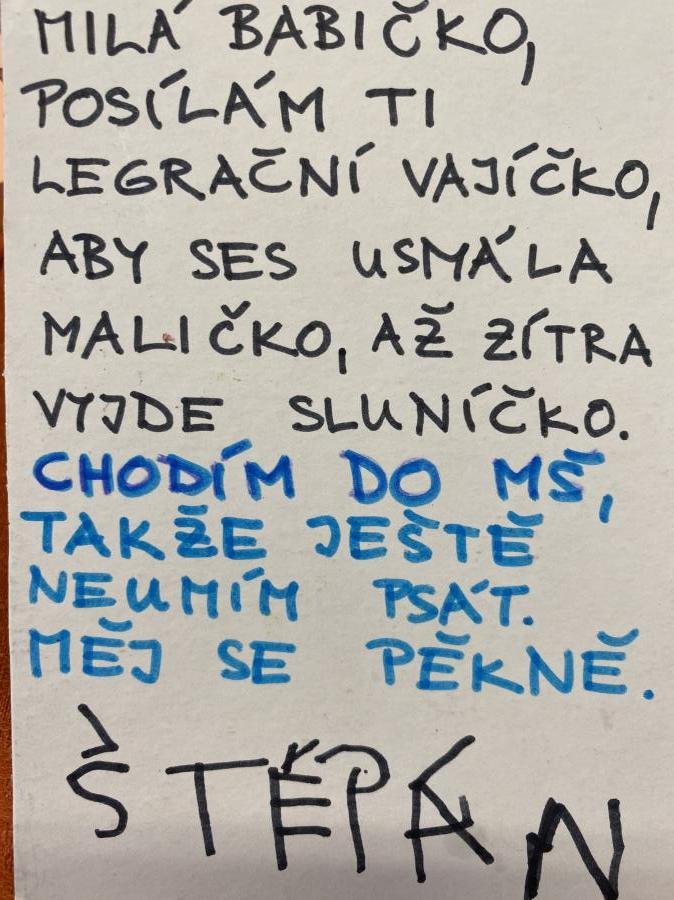 MILÁ BABIČKO,
POSÍLÁM TI
LEGRAČNÍ VAJÍČKO,
ABY SES USMÁLA
MALIČKO, AŽ ZÍTRA
VYJDE SLUNÍČKO.
CHODÍM DO MŠ,
TAKŽE JEŠTĚ
NEUMÍM PSÁT.
MĚJ SE PĚKNĚ.
ŠTĚPÁN